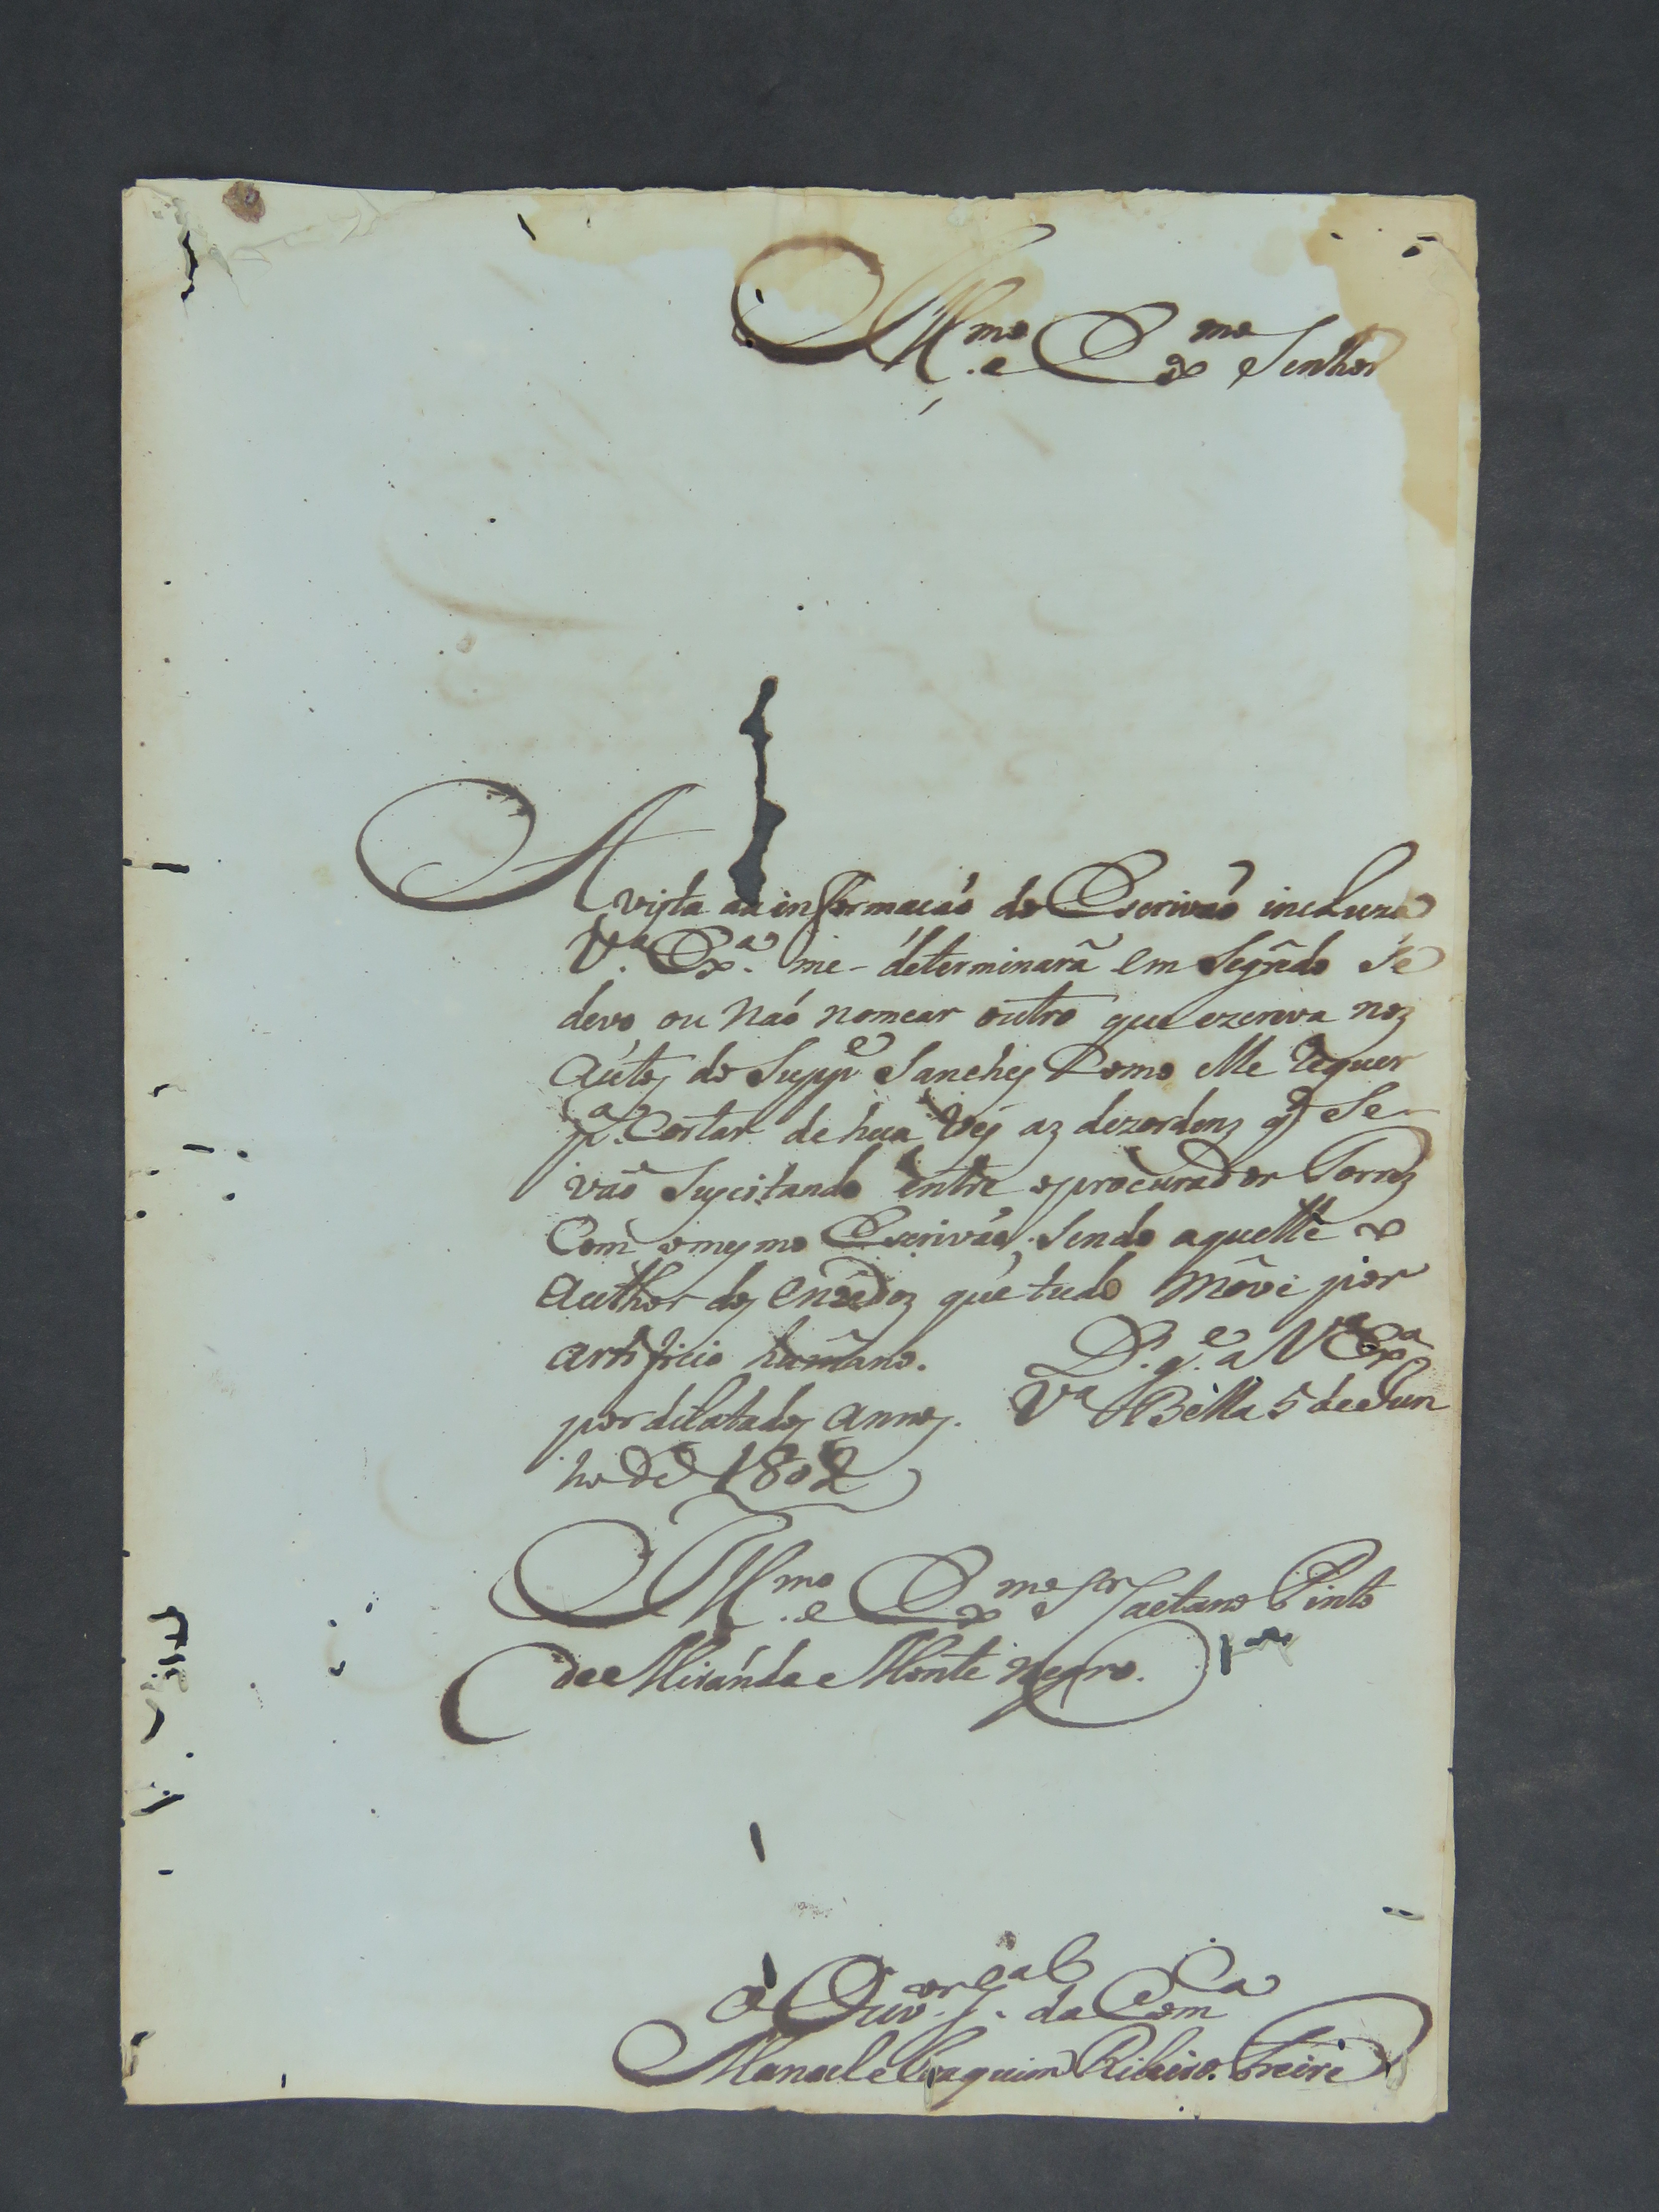 Illmo. e Exmo Senhor
A vista da informacaó do Escrivaõ incluza
Va. Exa. me determinarã em Segrẽdo Se
devo, ou naó nomear outro que ezcreva noz
Autos do Suppe Sanches Como Elle requer
pa. Cortar de hua vés az dezordenz q Se
vaõ Suscitando entre o procurador Torrez
Com o mesmo Escrivaõ, Sendo aquelle o
Author dos enrêdoz que tudo môve por
artificio humano. D. ge. a Va Exa
por dilatados annos. Va Bella 5 de Jun
ho de 1802
Illmo. e Exmo Snr Caetano Pinto
de Miranda e Monte negro.
O Ouvor. gal. da Comca
Manoel Joaquim Ribeiro. Freire